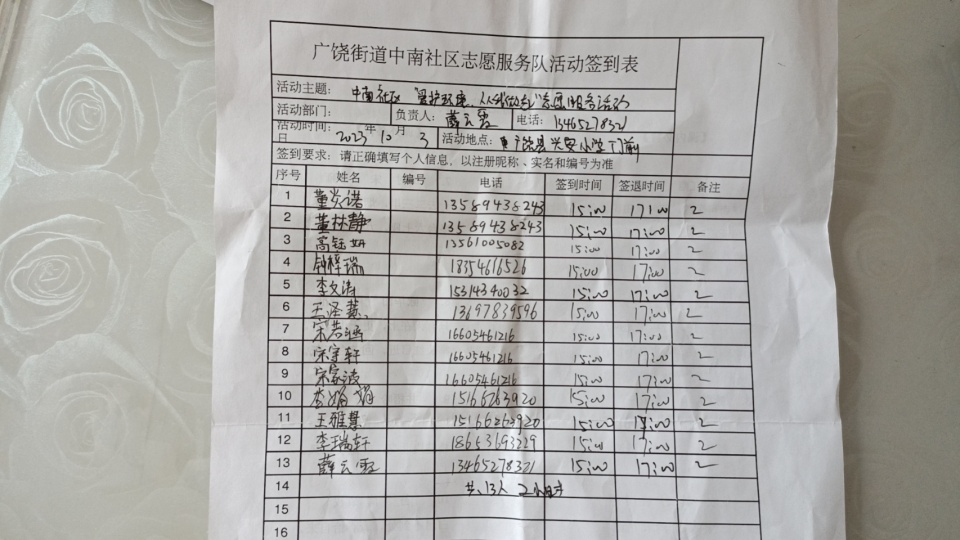 广饶街道中南社区志愿服务队活动签到表
活动主题： 中南社区“爱护环境，从我做起”志愿服务活动
活动部门： 负责人：薛云霞 电话：13465278321
活动时间： 2023年10月3日 活动地点： 广饶县兴安小学门前
签到要求：请正确填写个人信息，以注册昵称、实名和编号为准
序号 姓名 编号 电话 签到时间 签退时间 备注
1 董炎诺 13589438243 15:00 17:00 2
2 董林静 13589438243 15:00 17:00 2
3 高钰 13561005082 15:00 17:00 2
4 钟梓瑞 18354616526 15:00 17:00 2
5 李文涛 15314340032 15:00 17:00 2
6 王泽慧 13697839596 15:00 17:00 2
7 宋若涵 16605461216 15:00 17:00 2
8 宋宇轩 16605461216 15:00 17:00 2
9 宋家波 16605461216 15:00 17:00 2
10 李娟 15166763920 15:00 17:00 2
11 王雅慧 15166263920 15:00 17:00 2
12 李瑞轩 18653693329 15:00 17:00 2
13 薛云霞 13465278321 15:00 17:00 2
14 共13人 2小时
15
16